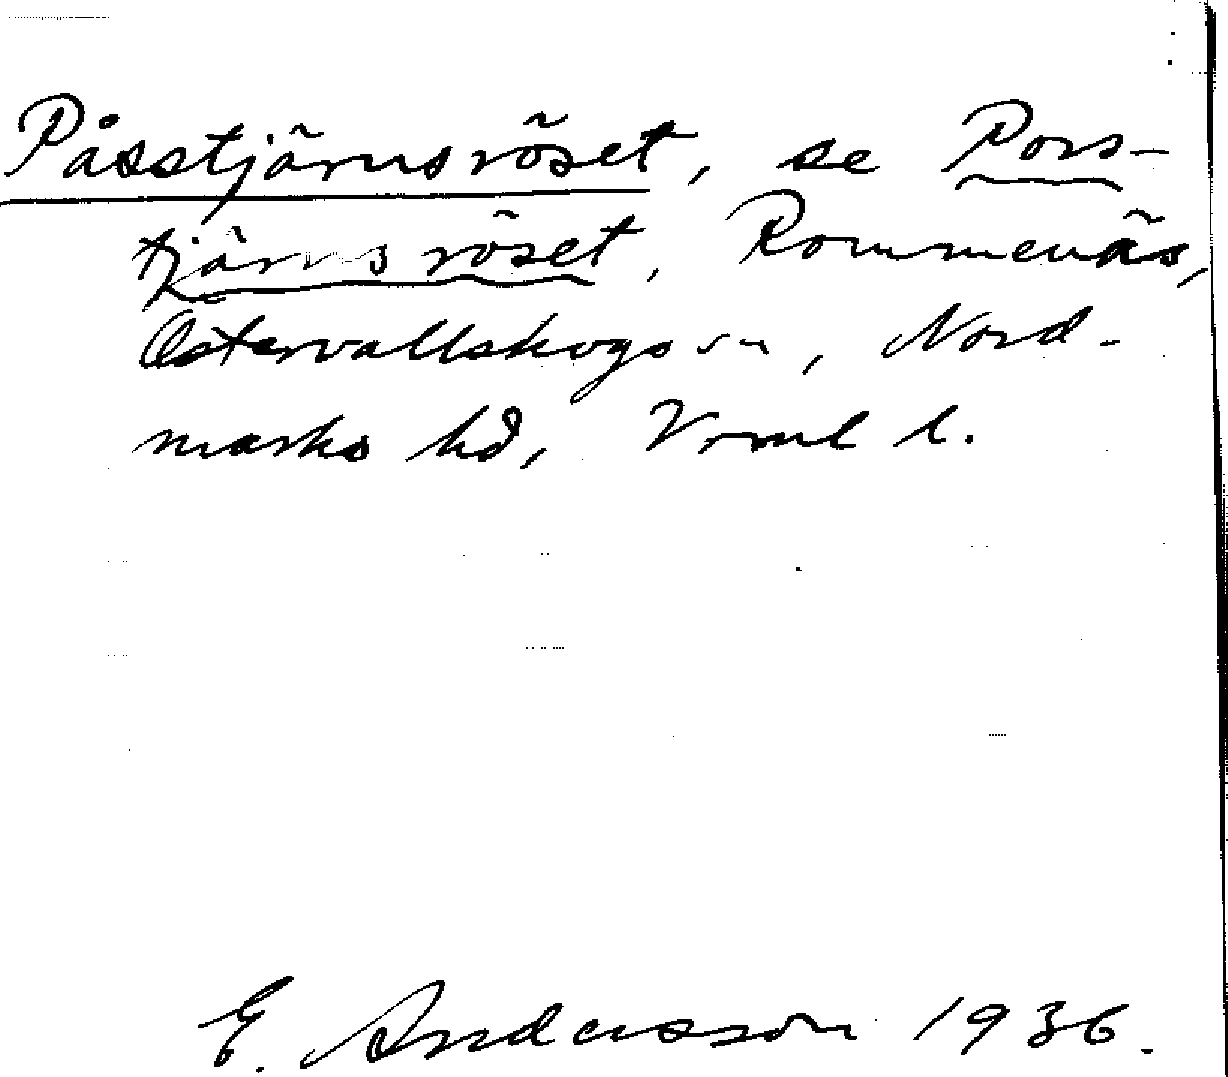 Påsstjärnsröset, se Pors-
tjärnsröset, Rommenäs,
Östervallskogs sn, Nord-
marks hd, Vrml l.
E. Andersson 1936.